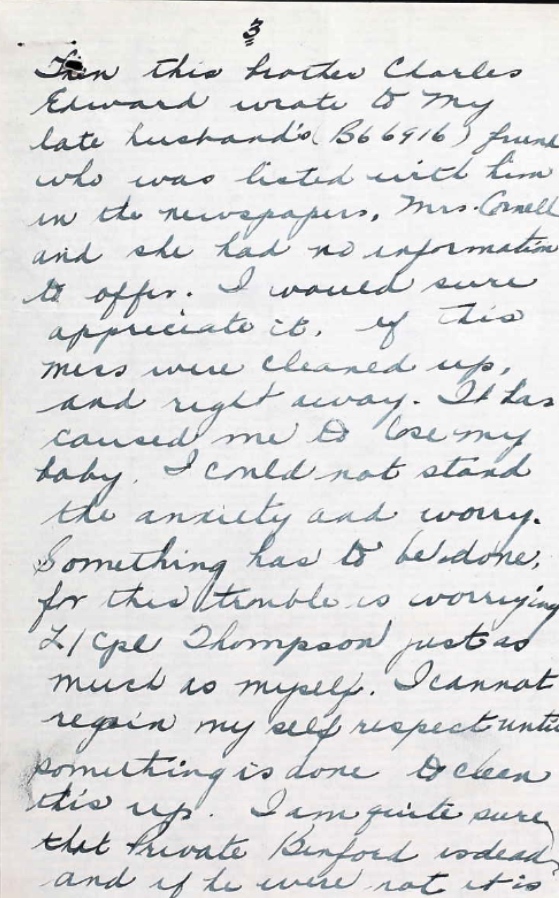 3
Then this brother Charles
Edward wrote to my
late husband's (B66916) friend
who was listed with him
in the newspapers, Mrs. Cornell
and she had no information
to offer. I would sure
appreciate it, if this
mess were cleaned up,
and right away. It has
caused me to lose my
baby. I could not stand
the anxiety and worry.
Something has to be done,
for this trouble is worrying
L/Cpl Thompson just as
much as myself. I cannot
regain my self respect until
something is done to clean
this up. I am quite sure
that Private Binford is dead
and if he were not it is